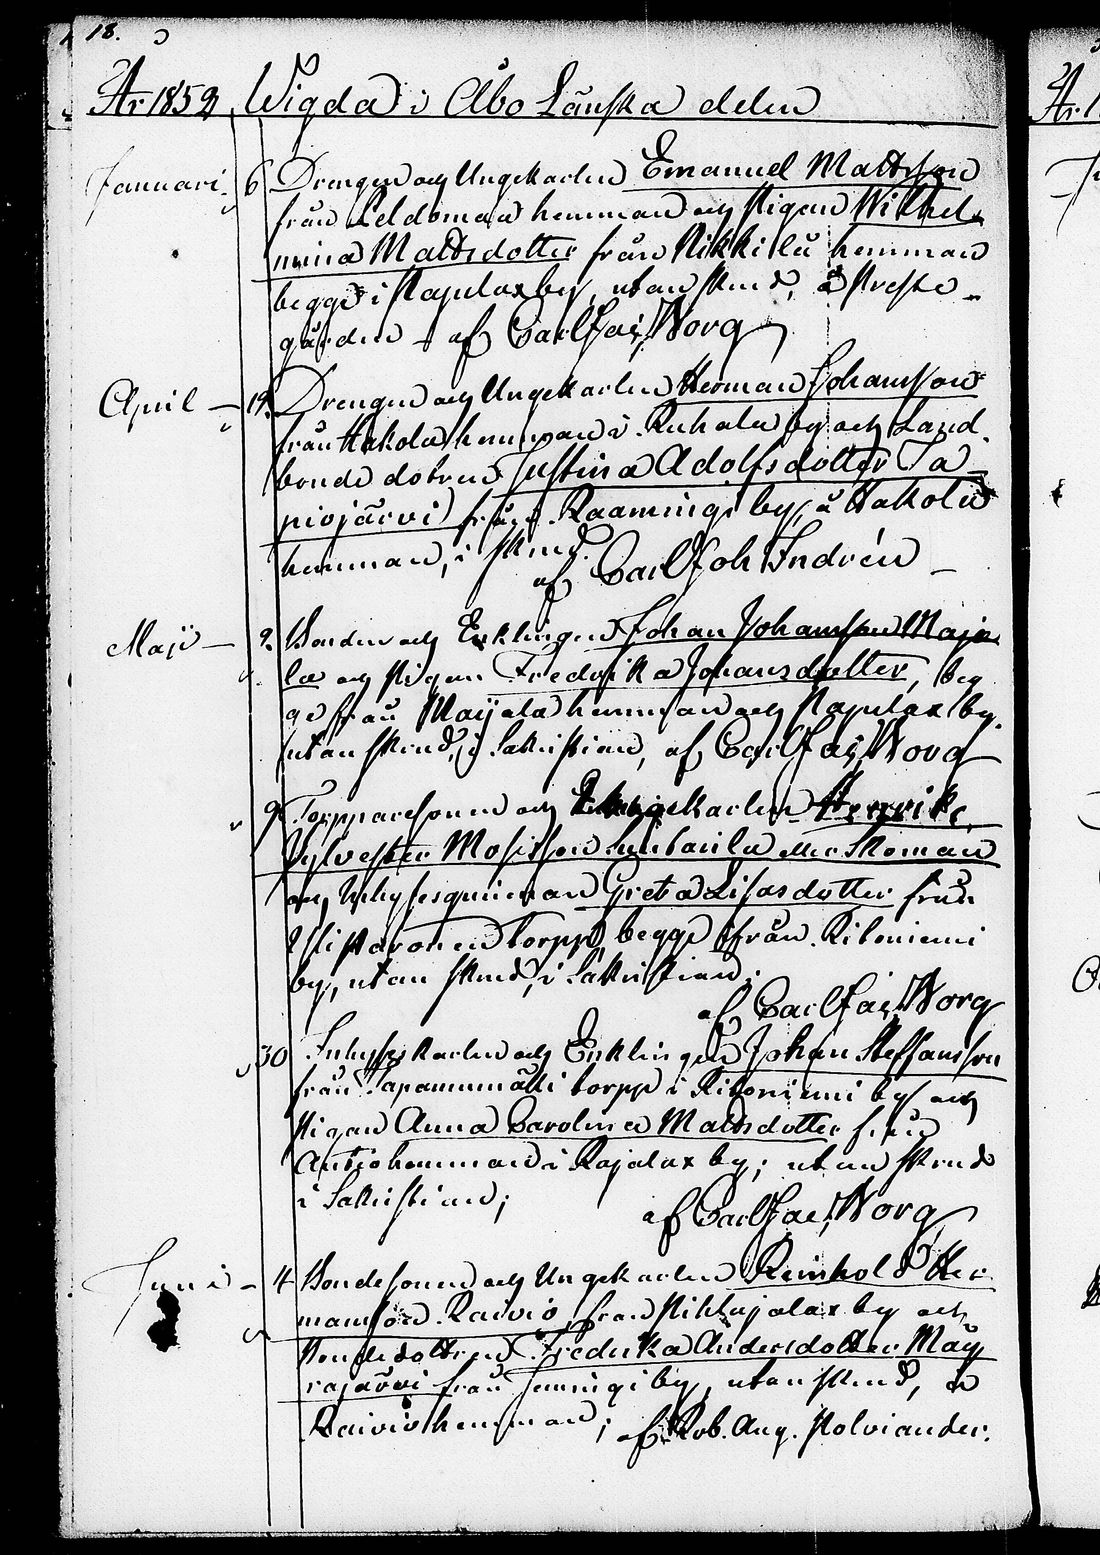 18.
År 1852 Wigda i Åbo Länska delen
Januari 6 Drengen och Ungekarlen Emanuel Mattsson
från hemman och Pigan Wilhel-
mina Mattsdotter från Nikkilä hemman
begge i Papulax by, utan skrud, å Preste-
gården - af Carl Jac. Norg
April - 19. Drengen och Ungekarlen Herman Johansson
från Hakola hemman i by och Land-
bonde dotren Justina Adolfsdotter Ta-
piojärvi från Raaminge by, å Hakola
hemman, i skrud.
af Carl Joh Indrén -
Maji - 2. Bonden och Enklingen Johan Johansson Maja-
la och Pigan Fredrika Johansdotter, beg-
ge från Maijala hemman och Papulax by
utan skrud, i Sakristian, af Carl Jac. Norg
9. Torpparesonen och Ungekarlen Henrik
Sylvester Mosisson eller Skoman
och Inhysesqvinnan Greta Lisasdotter från
torpp, begge från Ritoniemi
by, utan skrud, i Sakristian;
af Carl Jac. Norg
30 Inhyseskarlen och Enklingen Johan Steffansson
från torpp i Ritoniemi by och
Pigan Anna Carolina Mattsdotter från
Anttio hemman i Rajalax by; utan skrud
i Sakristian;
af Carl Jac. Norg
Juni - 4 Bondesonen och Ungekarlen Reinhold Her-
mansson Raivio, från by och
Bondedottren Fredrika Andersdotter Mäy-
rajärvi från by, utan skrud, å
Raivio hemman; af Rob. Aug. Polviander.